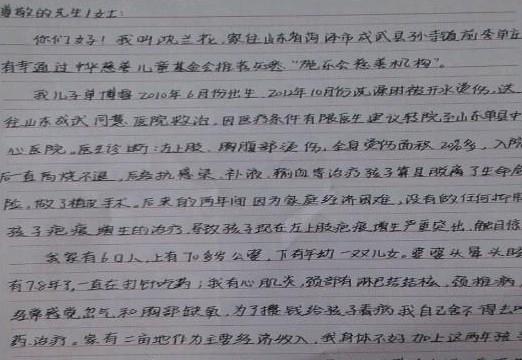 尊敬的先生/女士:
你们好!我叫沈兰花,家住山东省菏泽市成武县孙寺镇前李单庄
有幸通过中华慈善儿童基金会推荐知悉“施乐会慈善机构”。
我儿子单博睿2010年6月份出生,2012年10月份洗澡时被开水烫伤,送
往山东成武同慧医院救治,因医疗条件有限医生建议转院至山东单县中
心医院,医生诊断:左上肢、胸腹部烫伤,全身烫伤面积20%多,入院
后一直高烧不退,后经抗感染、补液、输血等治疗孩子算是脱离了生命危
险,做了植皮手术。后来的两年间因为家庭经济困难,没有做任何抗
孩子疤痕增生的治疗,导致孩子现在左上肢疤痕增生严重突出,触目惊
我家有6口人,上有70多岁公婆,下有年幼一双儿女。婆婆头晕头
有7.8年了,一直在打针吃药;我有心肌炎,颈部有淋巴结结核,颈椎病
经常感觉忽气和胸部缺氧,为了攒钱给孩子看病我自己舍不得去
药治疗。家有二亩地作为主要经济收入,我身体不好加上这两年孩